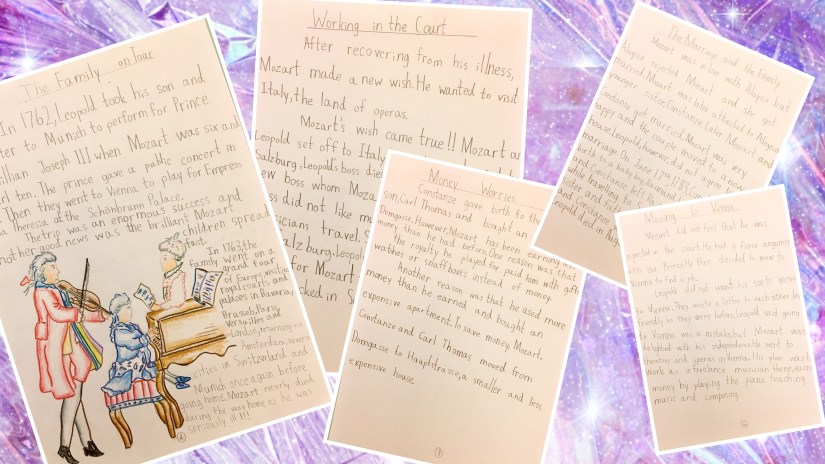 The Family on Tour
In 1762, Leopold took his son and
ter to Munich to perform for Prince
illian Joseph III when Mozart was six and
rl ten. The prince gave a public concert in
Then they went to Vienna to play for Empress
Theresa at the Schönbrunn Palace.
The trip was an enormous success and
nother good news was the brilliant Mozart
children spread
fast.
In 1763, the
family went on a
grand tour
of Europe, visiting
royal courts and
palaces in Bavaria,
Brussels, Paris
Versailles and
London, returning via
Amsterdam, several
cities in Switzerland and
Munich once again before
going home. Mozart nearly died
during the way home as he was
seriously ill!!!
Working in the Court
After recovering from his illness,
Mozart made a new wish. He wanted to visit
Italy, the land of operas.
Mozart's wish came true!! Mozart an
Leopold set off to Italy
Salzburg, Leopold's boss died
ew boss whom Moza
ss did not like mu
icians travel. S
alzburg. Leopol
for Mozart
cked in S
Money Worries
Constanze gave birth to the
son, Carl Thomas and bought an
Domgasse. However, Mozart has been earning
money than he had before. One reason was that
the royalty he played for paid him with gifts
watches or snuffboxes instead of money.
Another reason was that he used more
money than he earned and bought an
expensive apartment. To save money, Mozart,
Constanze and Carl Thomas moved from
Domgasse to Haupttrasse, a smaller and less
expensive house.
The Marriage and the Family
Mozart was in love with Aloysia but
Aloysia rejected Mozart and she got
married. Mozart was later attached to Aloysia
younger sister, Constanze. Later, Mozart and
Constanze got married. Mozart was very
happy and the couple moved to a new
house. Leopold, however, did not agree the
marriage. On June 17th 1783, Con
birth to a baby boy, Raimund
Constanze left
while travelling to
sister and
and Constanze
Leopold died in Aug
Moving to Vienna
Mozart did not feel that he was
respected in the court. He had a fierce argument
with the Prince. He then decided to move to
Vienna to find a job.
Leopold did not want his son to move
to Vienna. They wrote a letter to each other in
friendly as they were before. Leopold said going
to Vienna was a mistake but Mozart was
delighted with his independence. He went to
theatres and operas in Vienna. His plan was to
work as a freelance musician there, earn
money by playing the piano, teaching
music and composing.